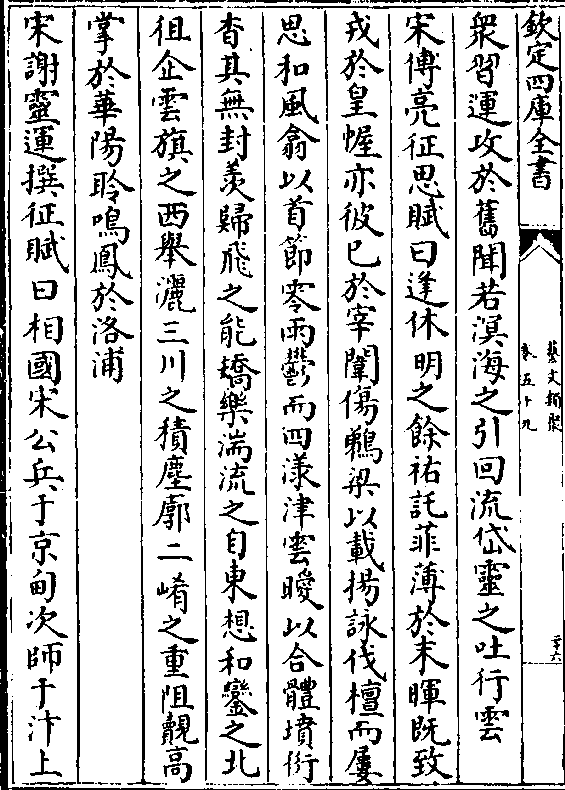 欽定四庫全書
藝文類聚
卷五十九
衆習運攻於舊聞若溟海之引回流岱靈之吐行雲
宋傅亮征思賦曰逢休明之餘祐託菲薄於末暉既致
戎於皇幄亦彼已於宰闈傷鵜梁以載揚詠伐檀而屢
思和風翕以首節零雨鬱而四漾津雲曖以合體墳衍
杳其無封羨歸飛之能矯樂湍流之自東想和鑾之北
徂企雲旗之西舉灑三川之積塵廓二崤之重阻覿高
掌於華陽聆鳴鳳於洛浦
宋謝靈運撰征賦曰相國宋公兵于京甸次師于汴上